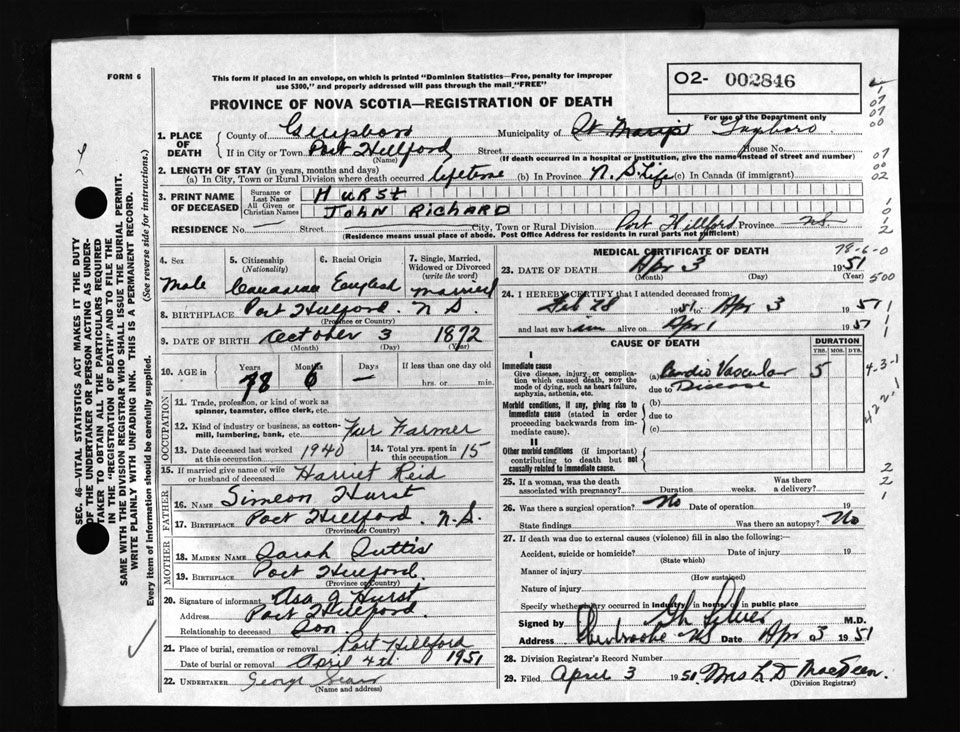 FORM 6
This form if placed in an envelope, on which is printed "Dominion Statistics—Free, penalty for improper
use $300," and properly addressed will pass through the mail "FREE"
O2- 002846
PROVINCE OF NOVA SCOTIA—REGISTRATION OF DEATH
For use of the Department only
1. PLACE OF DEATH
County of Guysboro Municipality of St Marys Guysboro
If in City or Town Port Hillford Street House No.
(Name) (If death occurred in a hospital or institution, give the name instead of street and number)
2. LENGTH OF STAY (in years, months and days)
(a) In City, Town or Rural Division where death occurred lifetime (b) In Province N.S. Life (c) In Canada (if immigrant)
3. PRINT NAME OF DECEASED
Surname or Last Name HURST
All Given or Christian Names JOHN RICHARD
RESIDENCE No. — Street — City, Town or Rural Division Port Hillford Province NS.
(Residence means usual place of abode. Post Office Address for residents in rural parts not sufficient)
4. Sex Male
5. Citizenship (Nationality) Canadian
6. Racial Origin English
7. Single, Married, Widowed or Divorced (write the word) married
8. BIRTHPLACE Port Hilford. N S.
(Province or Country)
9. DATE OF BIRTH October 3 1872
(Month) (Day) (Year)
10. AGE in Years 78 Months 6 Days — If less than one day old hrs. or min.
OCCUPATION
11. Trade, profession, or kind of work as spinner, teamster, office clerk, etc.
12. Kind of industry or business, as cotton-mill, lumbering, bank, etc. Fur Farmer
13. Date deceased last worked at this occupation 1940
14. Total yrs. spent in this occupation 15
15. If married give name of wife or husband of deceased Harriet Reid
FATHER
16. NAME Simeon Hurst
17. BIRTHPLACE Port Hillford. N.S.
(Province or Country)
MOTHER
18. MAIDEN NAME Sarah Suttis
19. BIRTHPLACE Port Hilford.
(Province or Country)
20. Signature of informant Asa J Hurst
Address Port Hillford.
Relationship to deceased Son
21. Place of burial, cremation or removal Port Hillford
Date of burial or removal April 4th 1951
22. UNDERTAKER George
(Name and address)
MEDICAL CERTIFICATE OF DEATH
78-6-0
23. DATE OF DEATH Apr 3 1951
(Month) (Day) (Year)
24. I HEREBY CERTIFY that I attended deceased from:
Feb 28 1951 to Apr 3 1951
and last saw him alive on Apr 1 1951
CAUSE OF DEATH
DURATION
YRS. MOS. DYS.
I
Immediate cause
Give disease, injury or complication which caused death, NOT the mode of dying, such as heart failure, asphyxia, asthenia, etc.
(a) Cardio Vascular 5
due to Disease
Morbid conditions, if any, giving rise to immediate cause (stated in order proceeding backwards from immediate cause).
(b)
due to
(c)
II
Other morbid conditions (if important) contributing to death but not causally related to immediate cause.
25. If a woman, was the death associated with pregnancy? Duration weeks. Was there a delivery?
26. Was there a surgical operation? No Date of operation 19
State findings Was there an autopsy? No
27. If death was due to external causes (violence) fill in also the following:
Accident, suicide or homicide? Date of injury 19
(State which)
Manner of injury
(How sustained)
Nature of injury
Specify whether injury occurred in industry, in home, or in public place
Signed by Silver M.D.
Address Sherbrooke NS Date Apr 3 1951
28. Division Registrar's Record Number
29. Filed April 3 1951. Mrs L D MacDeen.
(Division Registrar)
SEC. 46—VITAL STATISTICS ACT MAKES IT THE DUTY
OF THE UNDERTAKER OR PERSON ACTING AS UNDER-
TAKER TO OBTAIN ALL THE PARTICULARS REQUIRED
IN THE "REGISTRATION OF DEATH" AND TO FILE THE
SAME WITH THE DIVISION REGISTRAR WHO SHALL ISSUE THE BURIAL PERMIT.
WRITE PLAINLY WITH UNFADING INK. THIS IS A PERMANENT RECORD.
Every item of information should be carefully supplied. (See reverse side for instructions.)
1
07
07
00
07
00
02
1
0
1
2
500
1
1
4-3-1
422.1
2
2
1